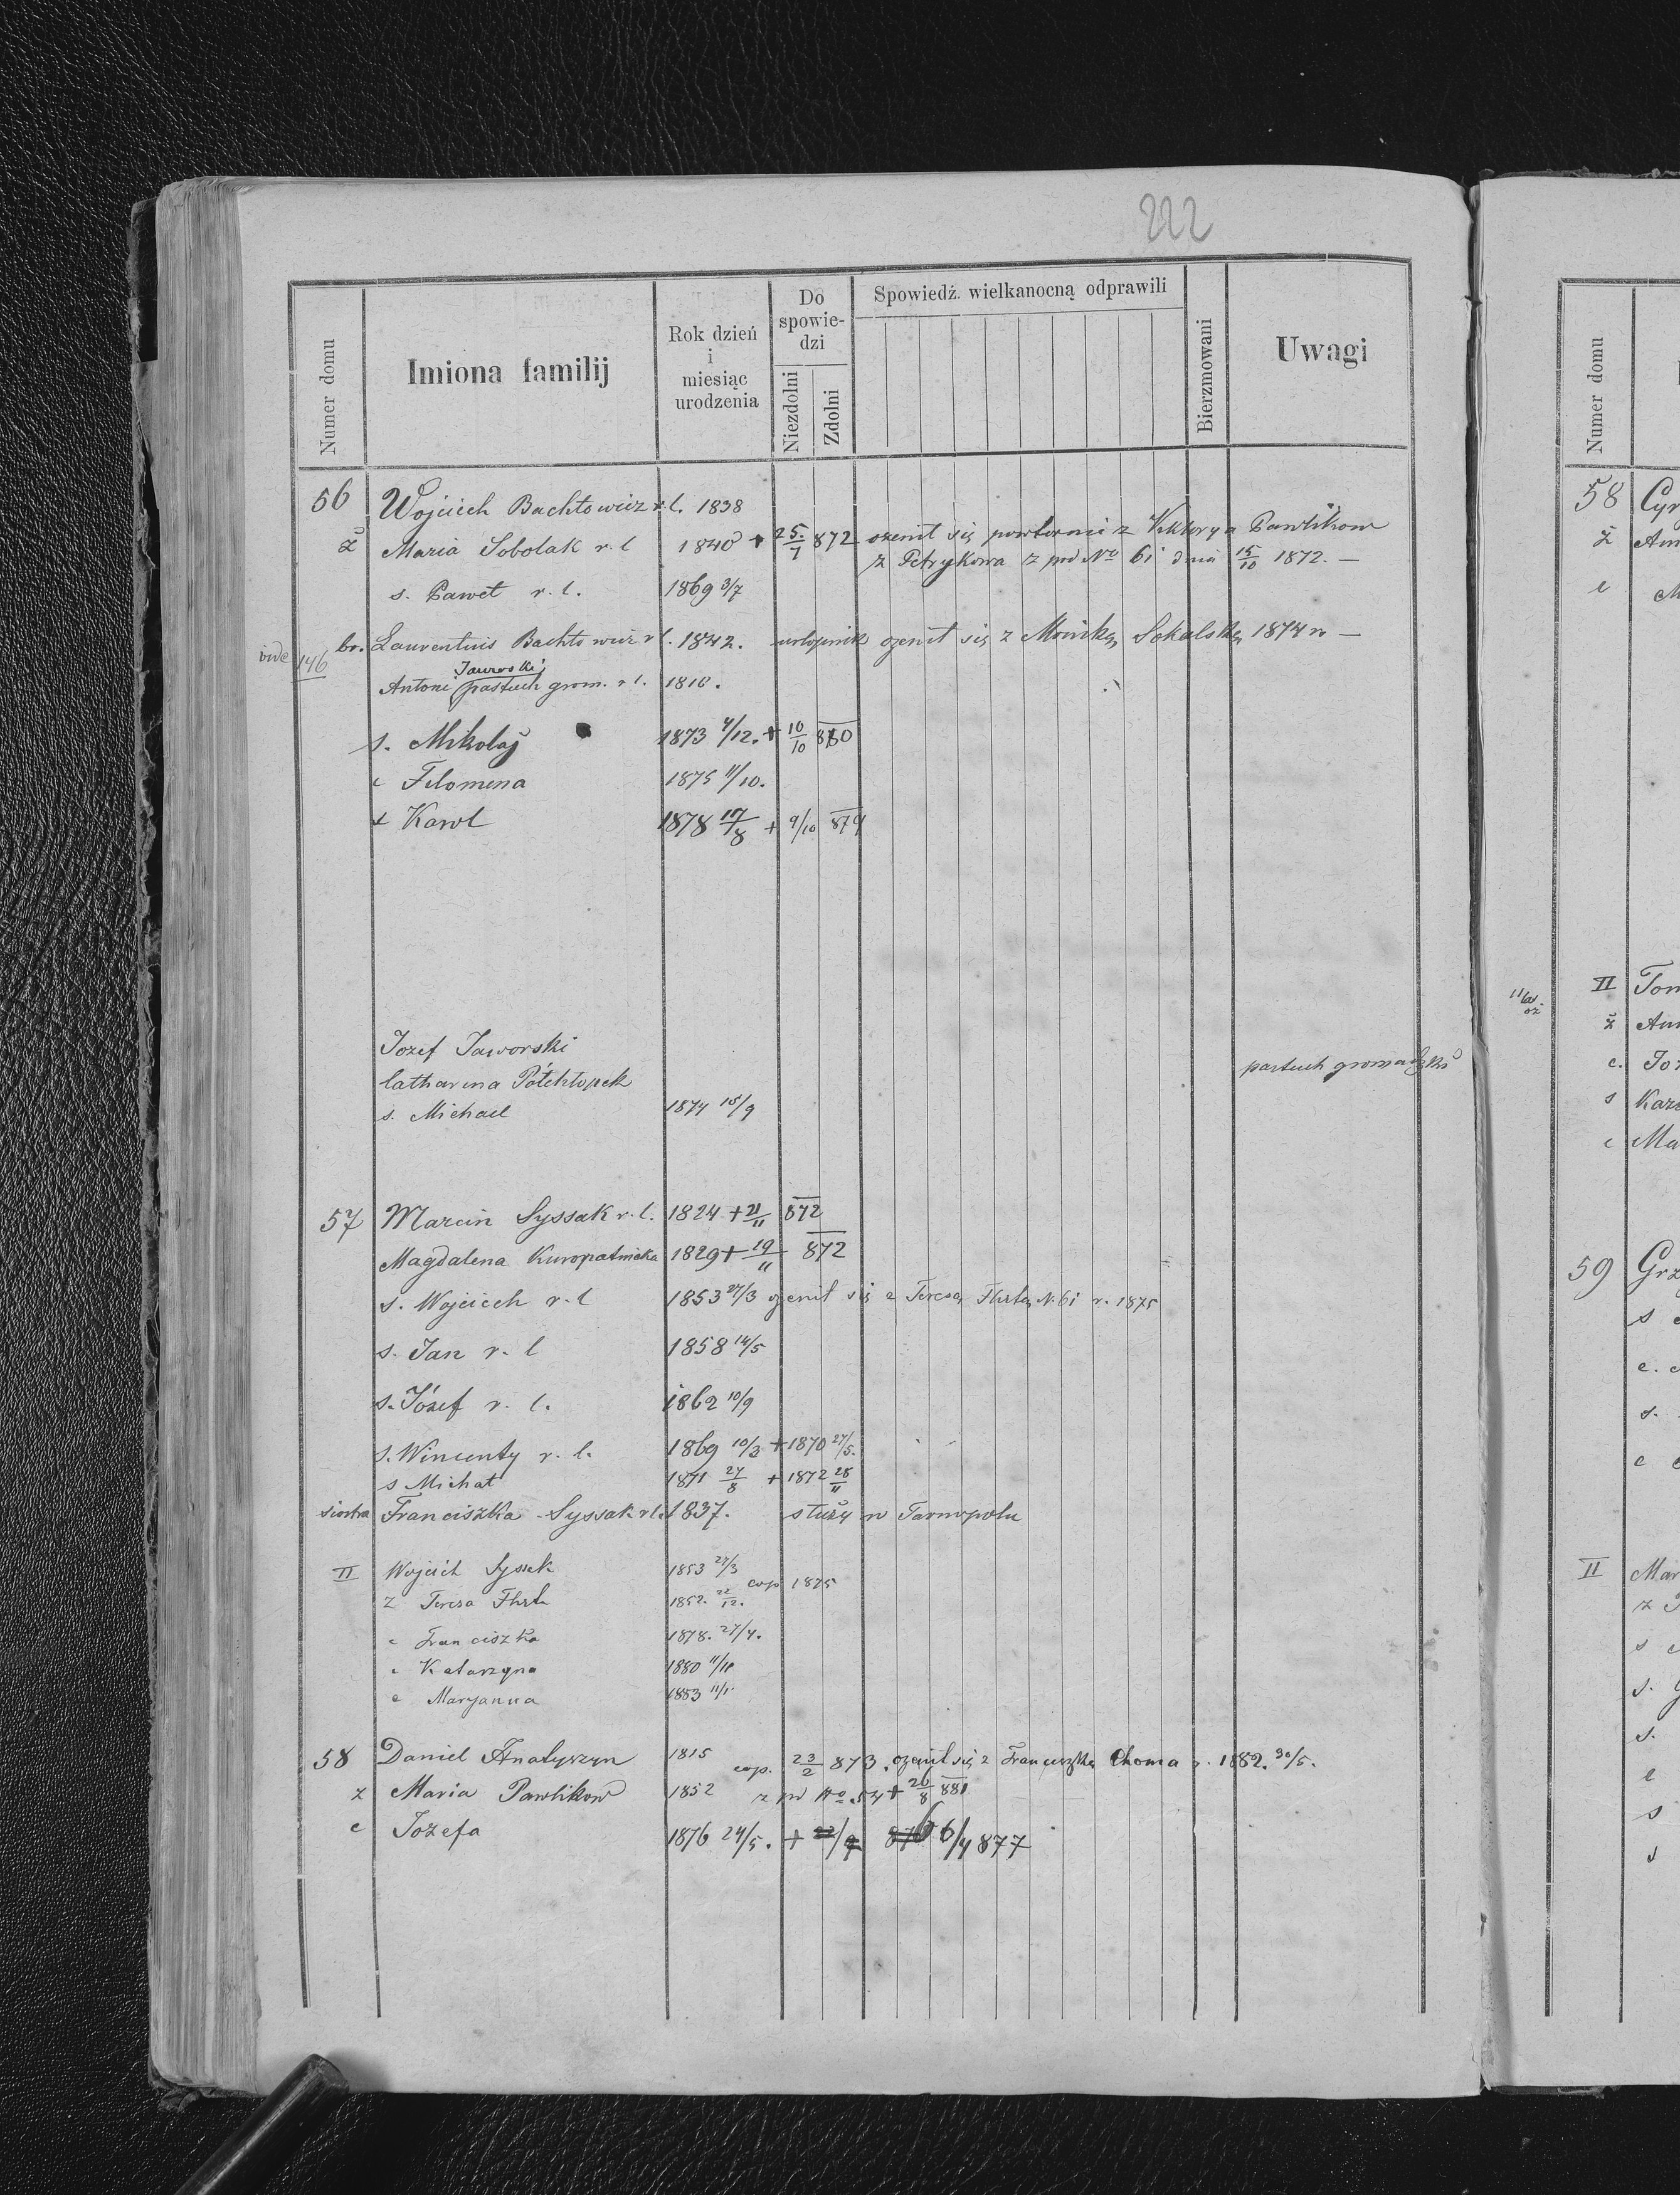 222
Numer domu
Imiona familij
Rok dzień
i
miesiąc
urodzenia
Do
spowie-
dzi
Niezdolni
Zdolni
Spowiedź. wielkanocną odprawili
Bierzmowani
Uwagi
56 Wojciech Bachtowicz r. l. 1838
ż Maria Sobolak r. l 1840 + 25/7 872 ozenił się powtornie z Viktorya Pawlikow
z Petrykowa z pod No 61 dnia 15/10 1872. —
s. Paweł r. l. 1869 3/7
br. Laurentius Bachtowicz r l. 1842. urlopnik ozenił się z Moniką Sokalską 1874 r —
vide 146
Jaworski
Antoni pastuch grom. r l. 1810.
s. Mikolaj 1873 4/12. + 10/10 880
c Filomena 1875 11/10.
s Karol 1878 17/8 + 9/10 879
Jozef Jaworski
pastuch gromadzki
Catharina Półchłopek
s. Michael 1874 15/9
57 Marcin Syssak r. l. 1824 + 21/11 872
Magdalena Kuropatnicka 1829 + 19/11 872
s. Wojciech r. l 1853 27/3 ozenił się z Teresą N. 61 r. 1875
s. Jan r. l 1858 14/5
s. Józef r. l. 1862 10/9
s. Wincenty r. l. 1869 10/3 + 1870 27/5.
s Michał 1871 27/8 + 1872 28/11
siostra Franciszka Syssak r l. 1837. służy w Tarnopolu
II Wojcich Syssak 1853 27/3
cop 1875
ż Teresa 1852. 22/12.
c Franciszka 1878. 27/4.
c Katarzyna 1880 11/10
c Maryanna 1883 11/1
58 Daniel Hnatyszyn 1815 cop. 23/2 873. ozenił się z Franciszką Choma r. 1882. 30/5.
ż Maria Pawlikow 1852 z pod No. 54 + 26/8 881
c Jozefa 1876 24/5. + 6/4 877
Numer domu
58 Cyr
ż
c
II Tom
ż
c. Joz
s Kaz
c Ma
59 Grz
s
c.
s.
c
II Mar
ż
s
s.
s.
c
s
s